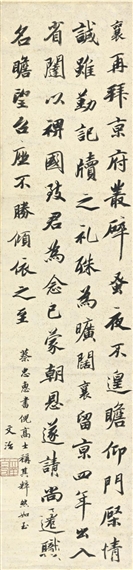 襄再拜京府叢碎蚤夜不遑瞻仰門屏情
誠雖勤記牘之礼殊為曠闊襄留京四年出入
省闥以裨國致君為念已蒙朝恩遂請尚遷職
名瞻望台座不勝傾依之至
蔡忠惠書倪高士稱其粹然如玉
文治